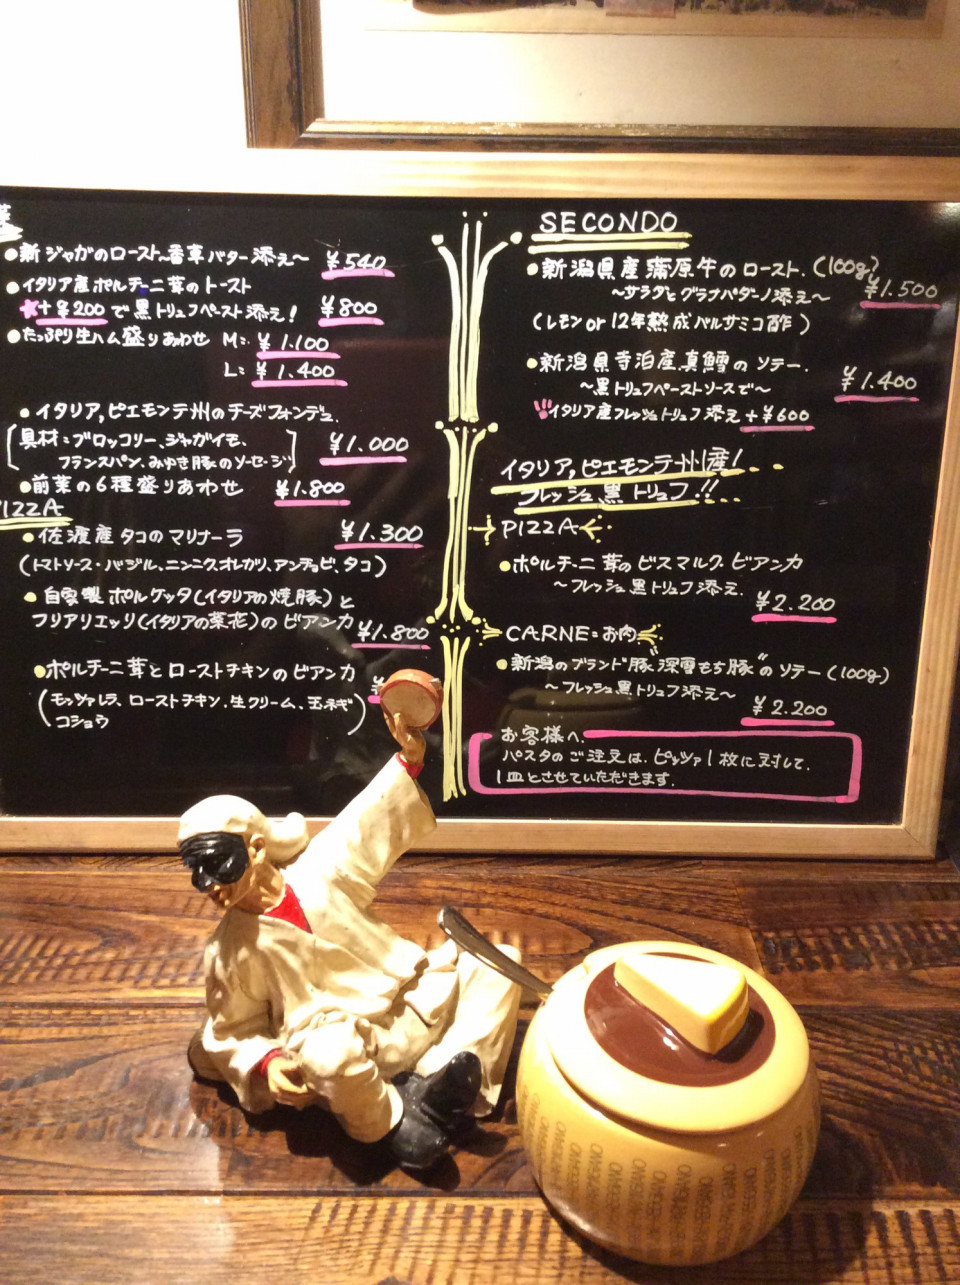 菜
●新ジャガのロースト〜香草バター添え〜 ¥540
●イタリア産ポルチーニ茸のトースト
+¥200で黒トリュフペースト添え! ¥800
●たっぷり生ハム盛りあわせ M: ¥1.100
L: ¥1.400
●イタリア,ピエモンテ州のチーズフォンデュ.
[具材:ブロッコリー、ジャガイモ、
フランスパン、みゆき豚のソーセージ] ¥1.000
●前菜の6種盛りあわせ ¥1.800
PIZZA
●佐渡産タコのマリナーラ ¥1.300
(トマトソース・バジル、ニンニクオレガノ、アンチョビ、タコ)
●自家製ポルケッタ(イタリアの焼豚)と
フリアリエッリ(イタリアの菜花)のビアンカ ¥1.800
●ポルチーニ茸とローストチキンのビアンカ ¥
(モッツァレラ、ローストチキン.生クリーム、玉ネギ
コショウ)
SECONDO
●新潟県産蒲原牛のロースト.(100g)
〜サラダとグラナパダーノ添え〜 ¥1.500
(レモン or 12年熟成バルサミコ酢)
●新潟県寺泊産真鱈のソテー. ¥1.400
〜黒トリュフペーストソースで〜
イタリア産フレッシュトリュフ添え+¥600
イタリア,ピエモンテ州産!
フレッシュ黒トリュフ!!
PIZZA
●ポルチーニ茸のビスマルク.ビアンカ
〜フレッシュ黒トリュフ添え. ¥2.200
CARNE=お肉
●新潟のブランド豚"深雪もち豚"のソテー(100g)
〜フレッシュ黒トリュフ添え〜
¥2.200
お客様へ
パスタのご注文は、ピッツァ1枚に対して、
1皿とさせていただきます.